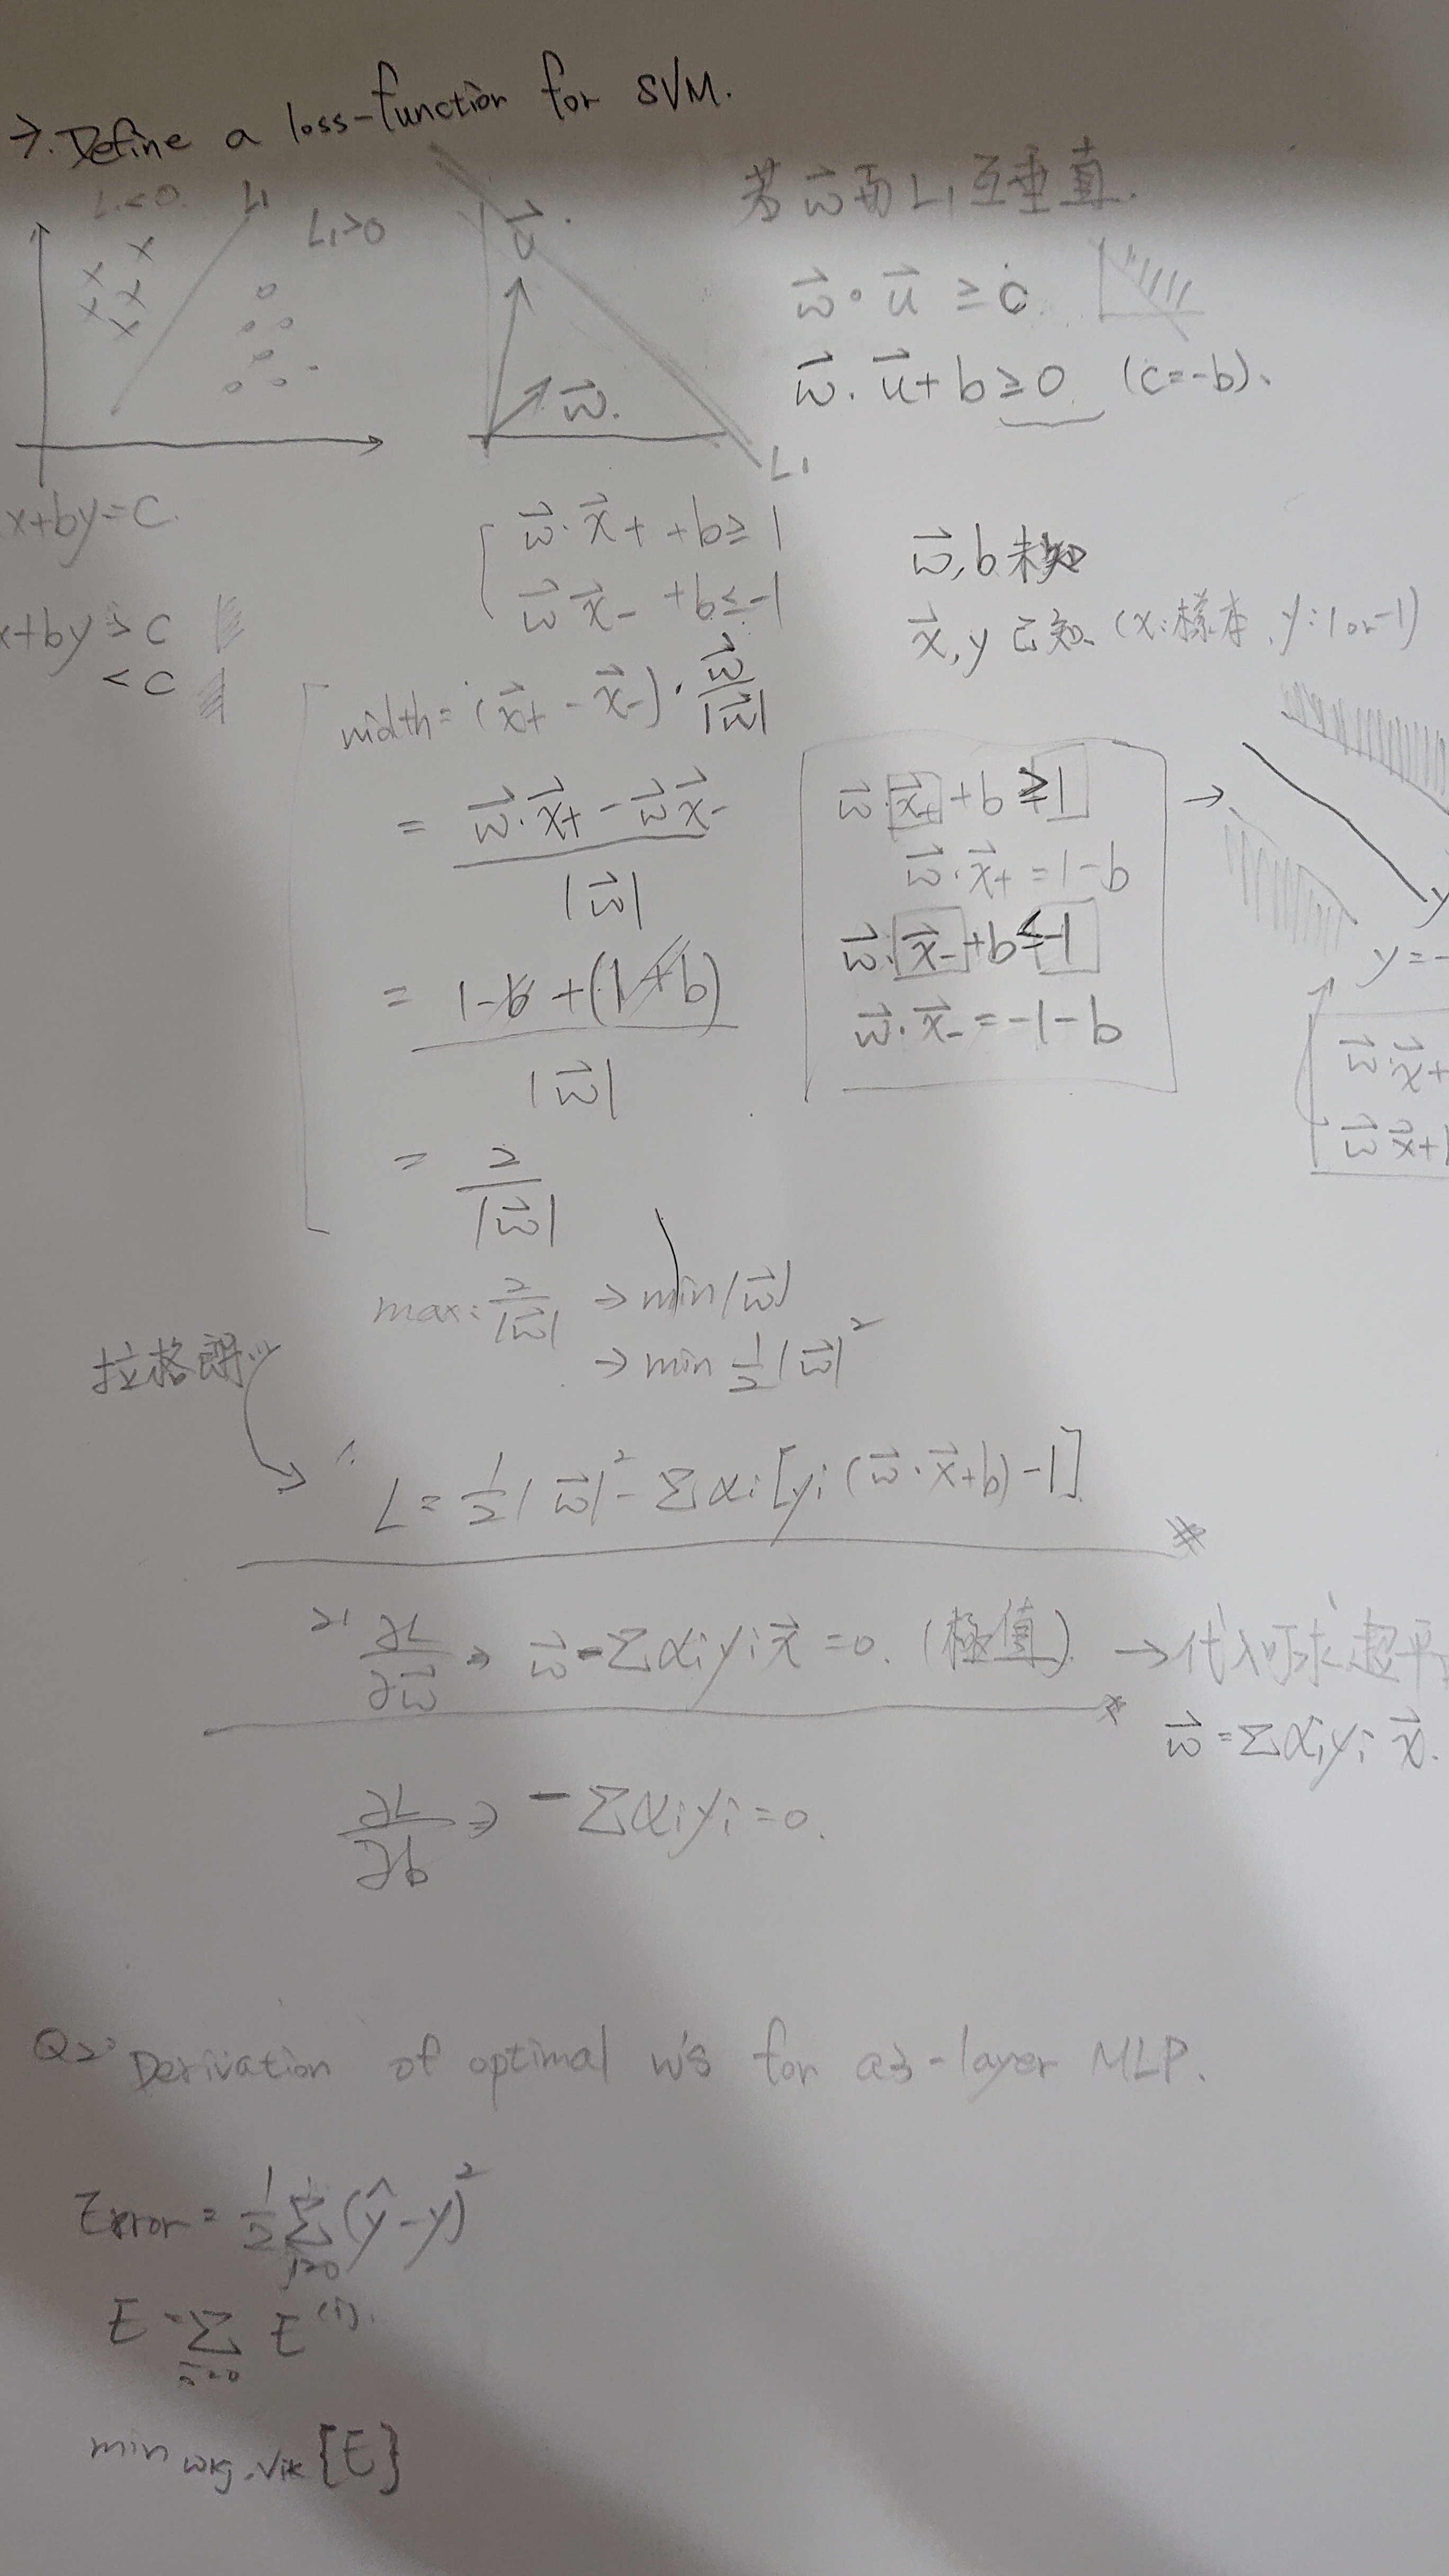 →. Define a loss-function for SVM.
L₁<0 L₁ L₁>0
若 w⃗ 而 L₁ 互垂直.
w⃗ ∘ u⃗ ≥ c
w⃗ · u⃗ + b ≥ 0 (c=-b)、
w⃗.
L₁
x+by=C.
x+by > C
< C
w⃗ · x⃗+ + b ≥ 1
w⃗ x⃗- + b ≤ -1
w⃗, b 未知
x⃗, y 已知 (x: 樣本, y: 1 or -1)
width = (x⃗+ - x⃗-) · w⃗/|w⃗|
= (w⃗ · x⃗+ - w⃗ x⃗-)/|w⃗|
= (1-b + (1+b))/|w⃗|
= 2/|w⃗|
w⃗ · x⃗+ + b ≥ 1 →
w⃗ · x⃗+ = 1-b
w⃗ · x⃗- + b ≤ -1
w⃗ · x⃗- = -1-b
y
y = -
w⃗ · x⃗+
w⃗ x⃗+
max: 2/|w⃗| → min|w⃗|
→ min ½|w⃗|²
拉格朗...
∴ L = ½|w⃗|² - Σαi[yi(w⃗ · x⃗+b) - 1]
∂L/∂w⃗ ⇒ w⃗ - Σαiyix⃗ = 0. (極值) → 代入可求超平
w⃗ = Σαiyi x⃗.
∂L/∂b ⇒ -Σαiyi = 0.
Q2: Derivation of optimal w's for a 3-layer MLP.
Error = ½ Σ j=0 (ŷ-y)²
E = Σ i=0 E⁽ⁱ⁾.
min wkj, vik {E}